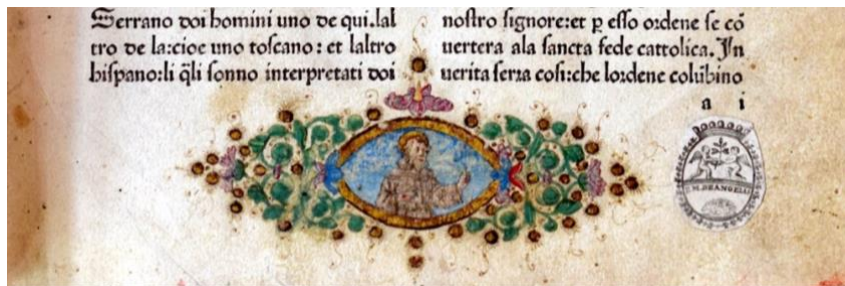 Serrano doi homini uno de qui.lal
tro de la:cioe uno toscano: et laltro
hispano:li q̃li sonno interpretati doi
nostro signore:et ꝑ esso ordene se cō
uertera ala sancta fede cattolica. In
uerita serra cosi:che lordene colūbino
a i
M. DEANGELI